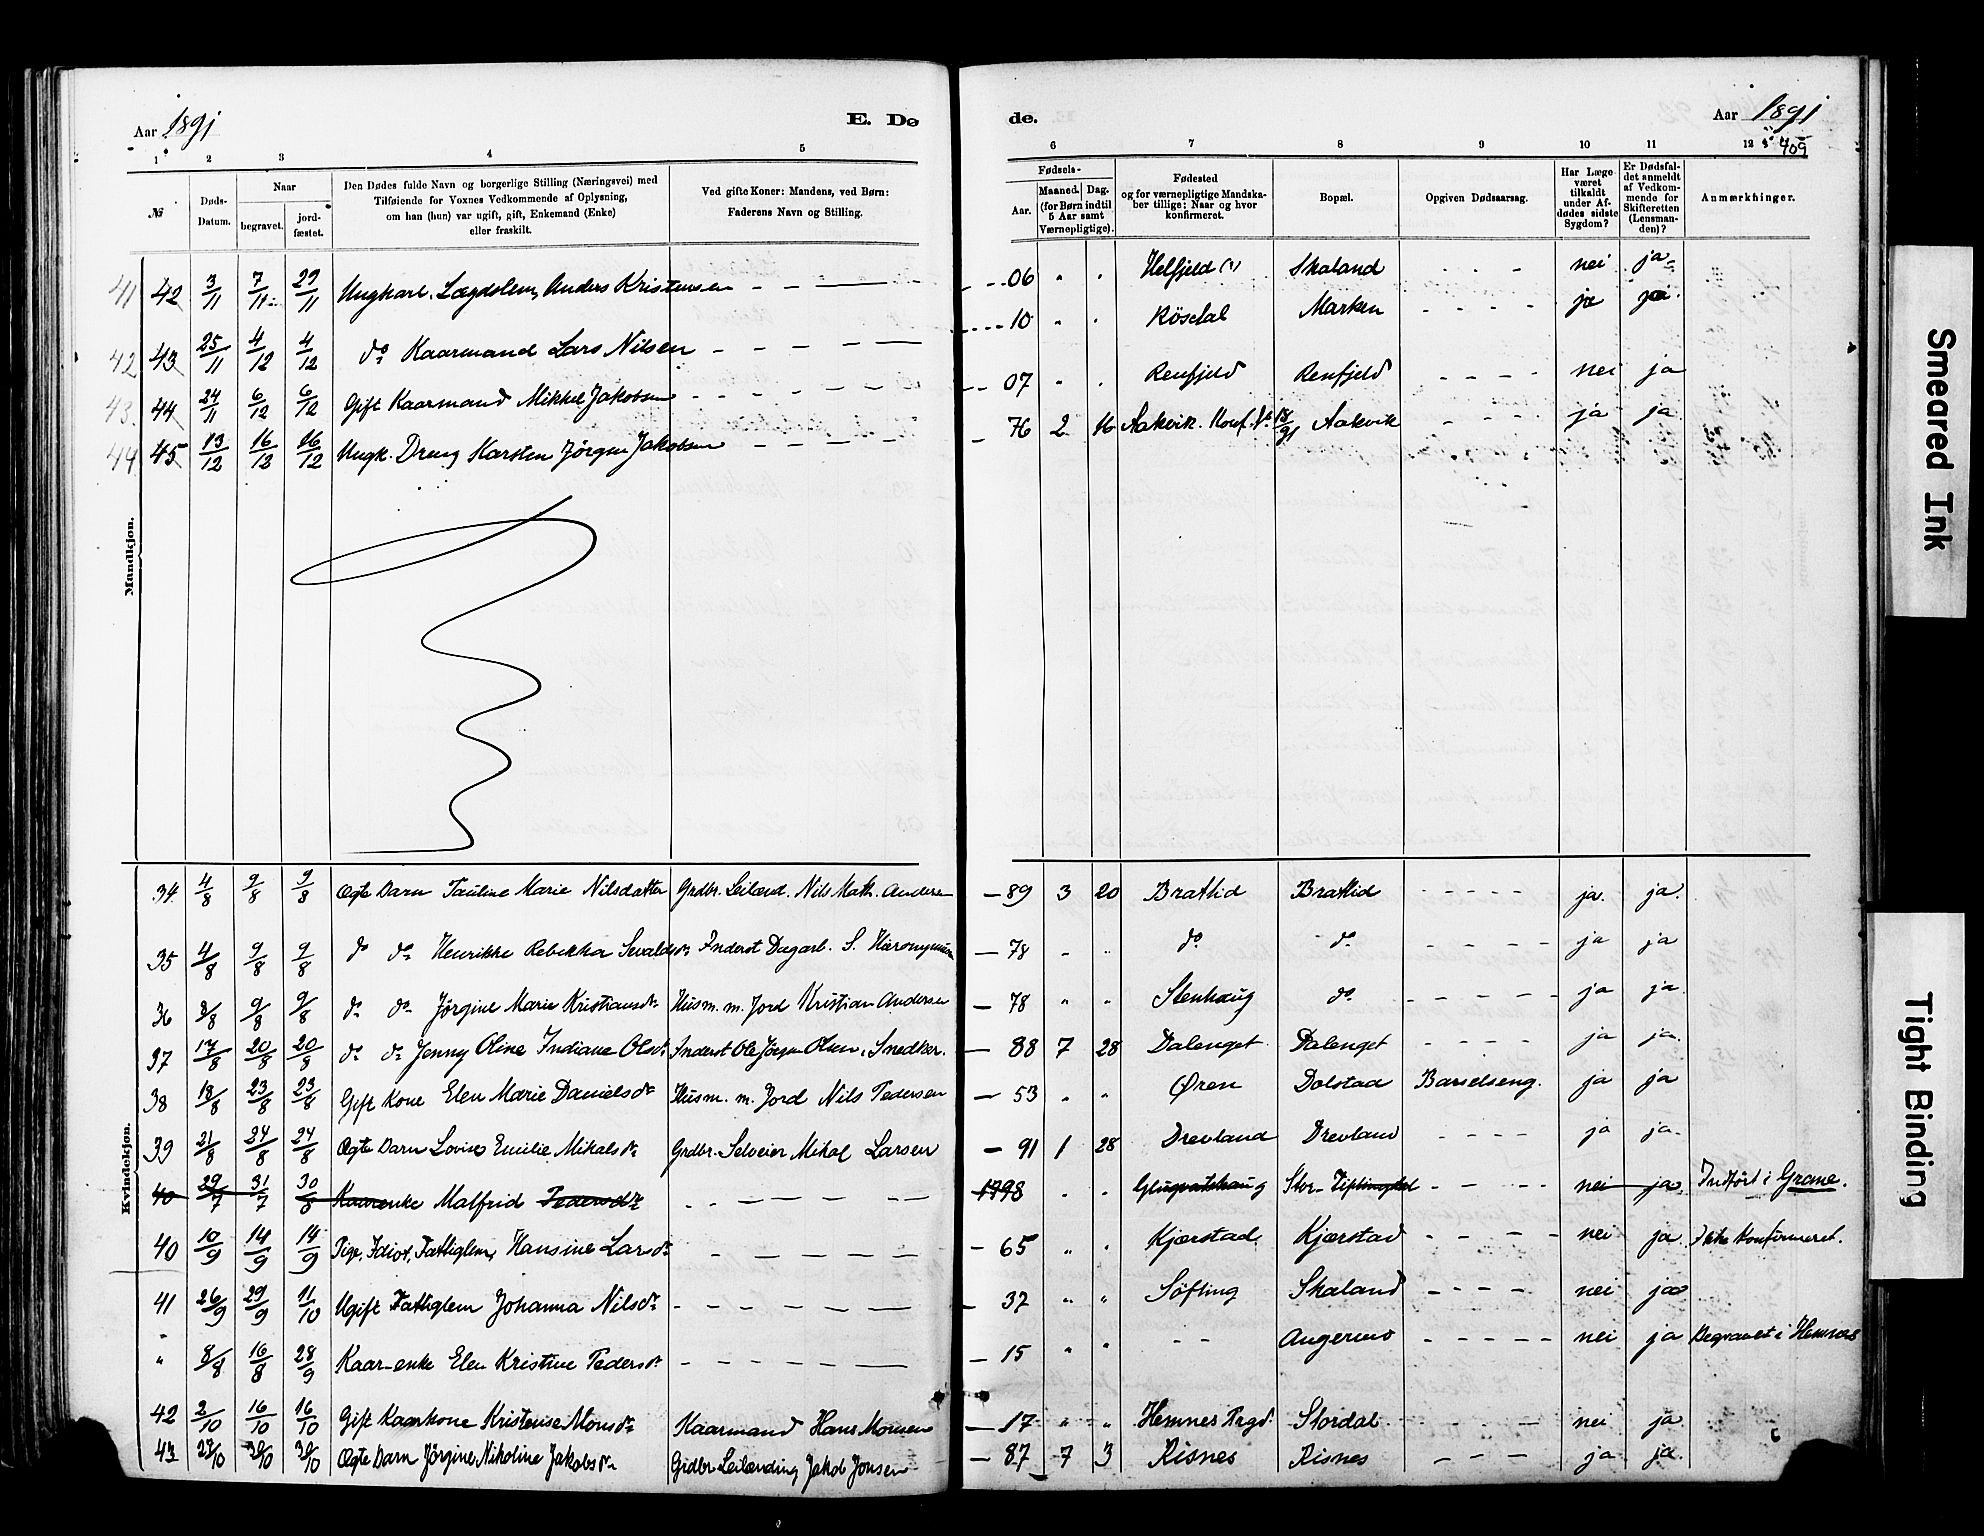 Aar 1891 E. Dø de. Aar 1891
409
1 2 3 4 5 6 7 8 9 10 11 12
№ Døds-Datum. Naar begravet. jord-fæstet. Den Dødes fulde Navn og borgerlige Stilling (Næringsvei) med Tilføiende for Voxnes Vedkommende af Oplysning, om han (hun) var ugift, gift, Enkemand (Enke) eller fraskilt. Ved gifte Koner: Mandens, ved Børn: Faderens Navn og Stilling. Fødsels- Aar. Maaned. Dag. (for Børn indtil 5 Aar samt Værnepligtige). Fødested og for værnepligtige Mandska-ber tillige: Naar og hvor konfirmeret. Bopæl. Opgiven Dødsaarsag. Har Læge været tilkaldt under Af-dødes sidste Sygdom? Er Dødsfal-det anmeldt af Vedkom-mende for Skifteretten (Lensman-den)? Anmærkninger.
Mandkjøn.
41 42 3/11 7/11 29/11 Ungkarl. Lægdslem, Anders Kristensen - - - 06 " " Helfjeld (?) Skaland - - - nei ja
42 43 25/11 4/12 4/12 do Kaarmand Lars Nilsen - - - 10 " " Røsdal Marken - - - ja ja
43 44 24/11 6/12 6/12 Gift Kaarmand Mikkel Jakobsen - - - 07 " " Renfjeld Renfjeld - - - nei ja
44 45 13/12 16/12 16/12 Ungk. Dreng Karsten Jørgen Jakobsen - - - 76 2 16 Aakvik. Konf. 91 Aakvik - - - ja ja
Kvindekjøn.
34 4/8 9/8 9/8 Ægte Barn Pauline Marie Nilsdatter Grdbr. Leilænd. Nils Math. Andersen - 89 3 20 Brattlid Brattlid - - - ja ja
35 4/8 9/8 9/8 do do Henrikke Rebekka Sevaldsdr Inderst Dagarb. S. Hieronymusen - 78 " " do do - - - ja ja
36 8/8 9/8 9/8 do do Jørgine Marie Kristiansdr Husm. m. Jord Kristian Andersen - 78 " " Stenhaug do - - - ja ja
37 17/8 20/8 20/8 do do Jenny Oline Indiane Olsdr Inderst Ole Jørgen Olsen, Snedker. - 88 7 28 Dalenget Dalenget - - - ja ja
38 18/8 23/8 23/8 Gift Kone Elen Marie Danielsdr Husm. m. Jord Nils Pedersen - 53 " " Øren Dolstad Barselseng. ja ja
39 21/8 24/8 24/8 Ægte Barn Lovise Emilie Mikalsdr Grdbr. Selveier Mikal Larsen - 91 1 28 Drevland Drevland - - - ja ja
40 29/7 31/7 30/8 Kaarenke Malfrid Pedersdr - - - 1798 " " Store - - - nei ja Indført i Grane.
40 10/9 14/9 14/9 Pige, Idiot, Fattiglem, Hansine Larsdr - - - 65 " " Kjærstad Kjærstad - - - nei ja Ikke konfirmeret.
41 26/9 29/9 11/10 Ugift Fattiglem Johanna Nilsdr - - - 37 " " Søfting Skaland - - - nei ja
" 8/8 16/8 28/9 Kaar-enke Elen Kristine Pedersdr - - - 15 " " - - Angermo - - - nei ja Begravet i Hemnes
42 2/10 16/10 16/10 Gift Kaarkone Kristense Monsdr Kaarmand Hans Monsen - 17 " " Hemnes Prgd. Stordal - - - nei ja
43 23/10 30/10 30/10 Ægte Barn Jørgine Nikoline Jakobsdr Grdbr Leilænding Jakob Jonsen - 87 7 3 Risnes Risnes - - - ja ja
Smeared Ink
Tight Binding